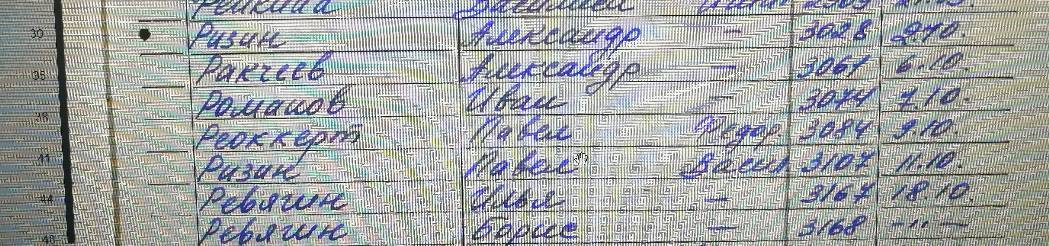 30 Ризин Александр — 3028 2.10.
35 Ракчеев Александр — 3061 6.10.
Романов Иван — 3074 7.10.
38 Реоккерт Павел Федор. 3084 9.10.
41 Ризин Павел Васил. 3107 11.10.
44 Ревягин Илья — 3167 18.10.
Ревягин Борис — 3168 -"-